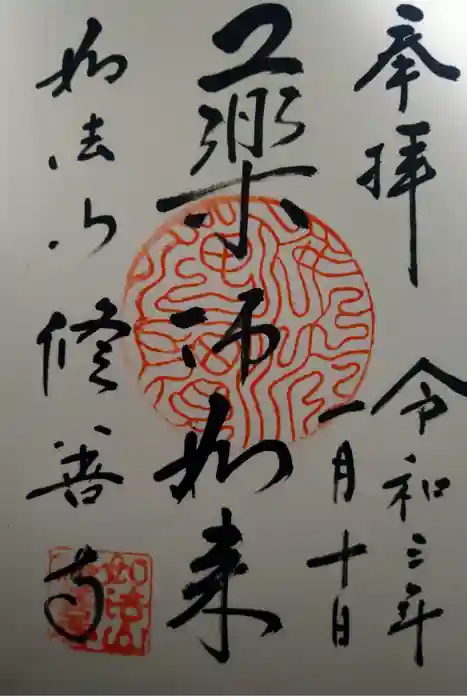 奉拝
令和三年
一月十日
薬師如来
如法山
修善寺